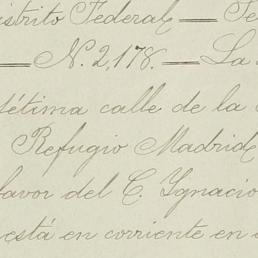 istrito Federal — Te
— N. 2,178. — La
sétima calle de la
Refugio Madrid
favor del C. Ignacio
está en corriente en